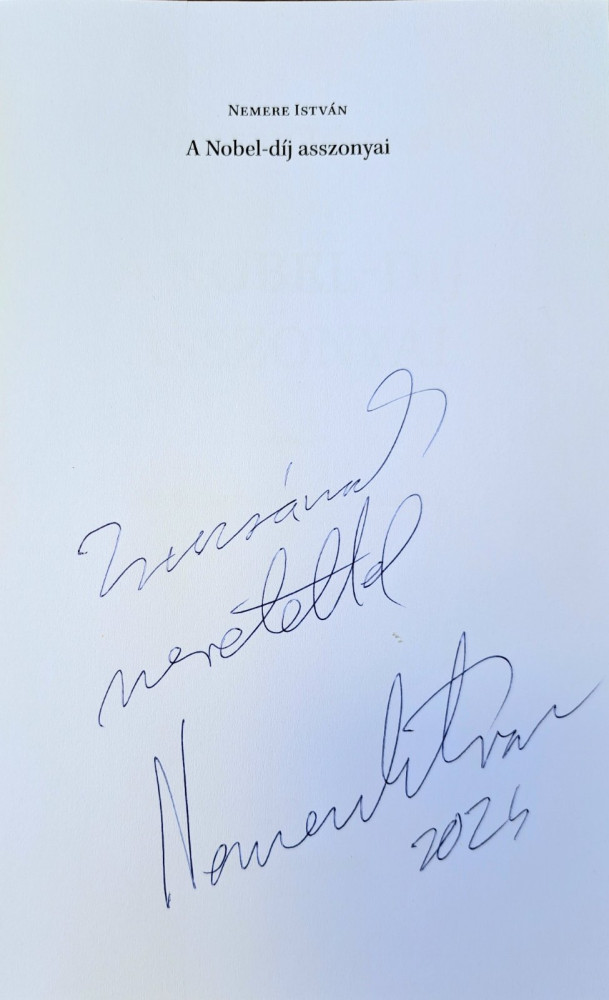 Nemere István
A Nobel-díj asszonyai
Zsuzsának
szeretettel
Nemere István